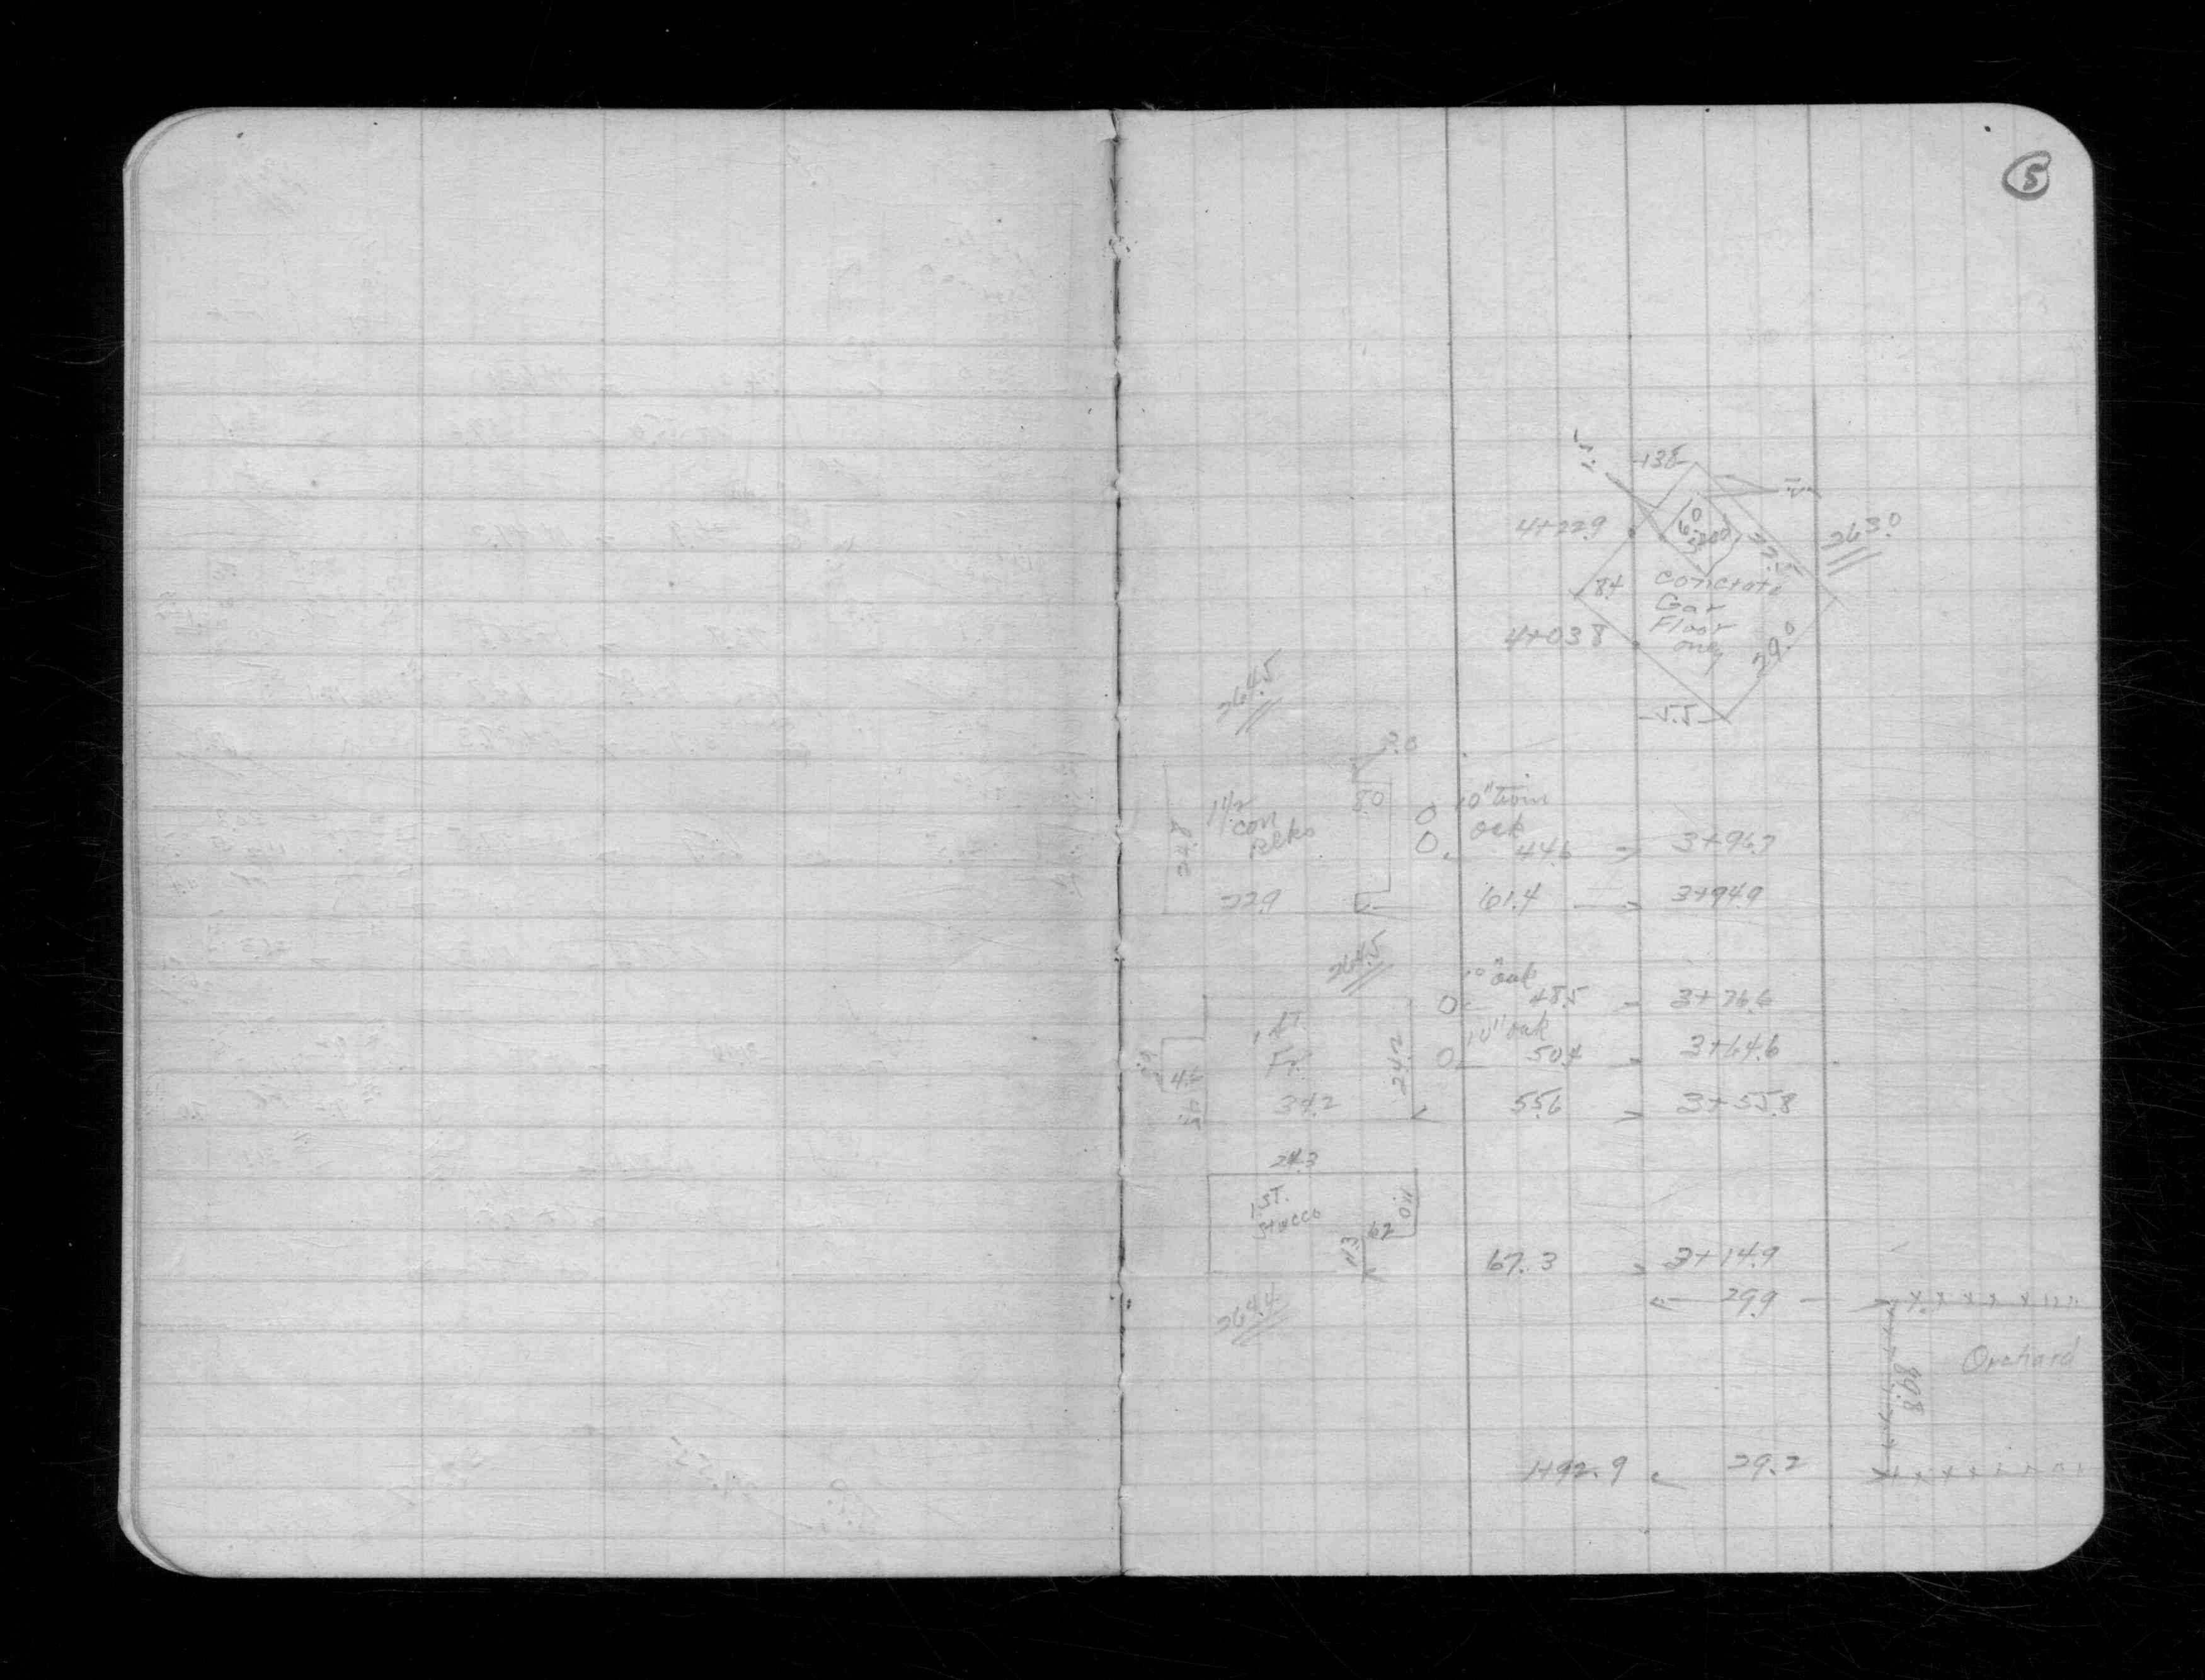 5
13.8
4+22.9
263.0
22.5
8.4
Concrate
Gar
Floor
only
4+03.8
29.0
5.5
264.5
8.0
10" twin
oak
1 1/2
con
Blks
24.8
44.6 3+96.3
22.9
61.4 3+94.9
264.5
10" oak
48.5 3+76.6
10" oak
1 st.
Fr.
24.2
50.4 3+64.6
4.6
34.2
55.6 3+55.8
24.3
1 ST.
Stucco
11.0
6.2
11.3
67.3 3+14.9
29.9
264.4
Orchard
89.8
1+92.9 29.2